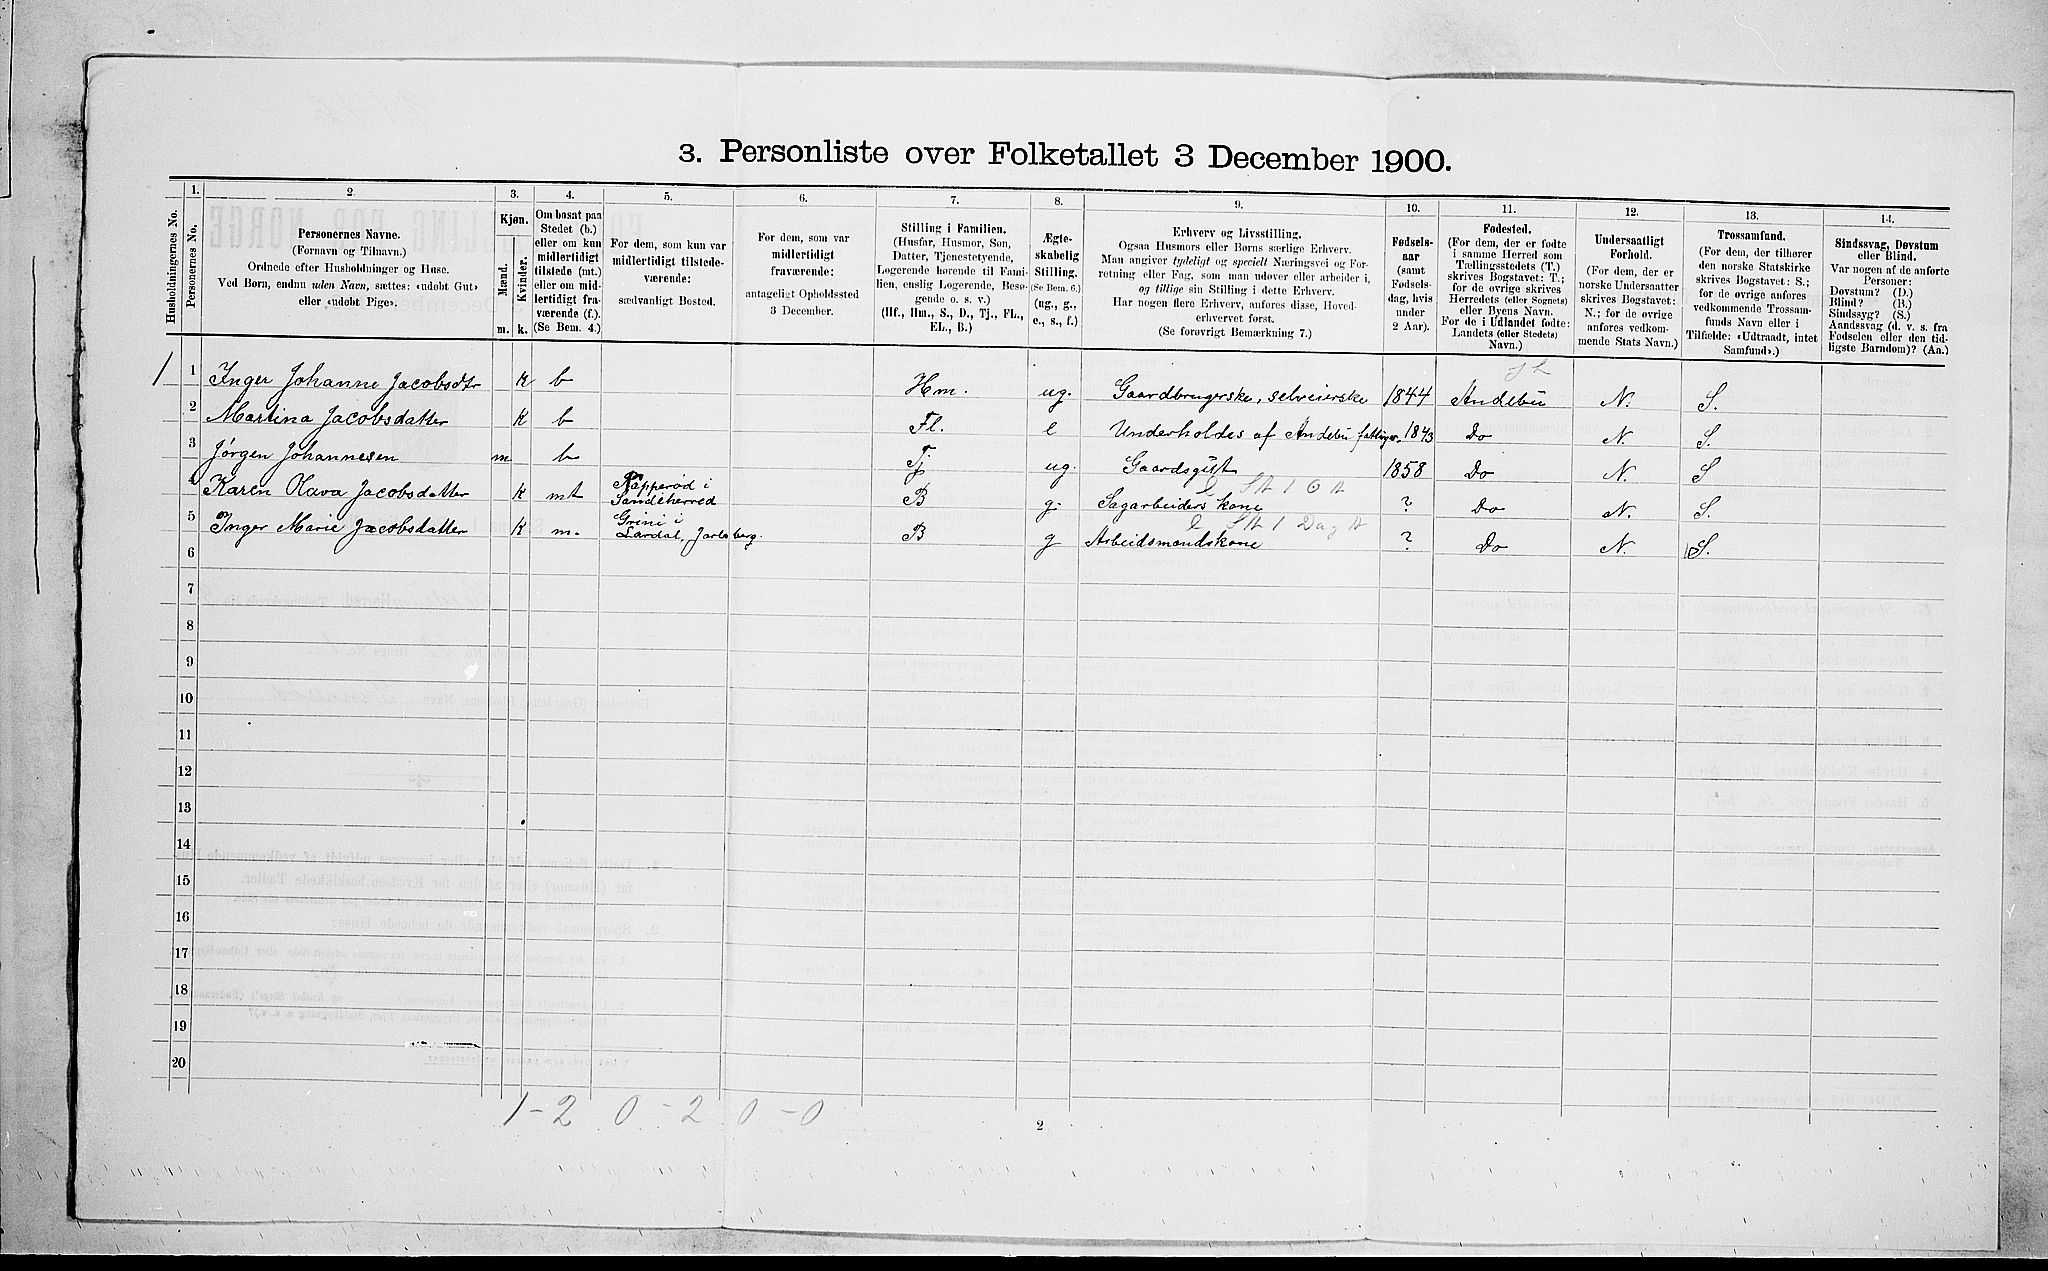 3. Personliste over Folketallet 3 December 1900.
Husholdningernes No.
1.
Personernes No.
2.
Personernes Navne.
(Fornavn og Tilnavn.)
Ordnede efter Husholdninger og Huse.
Ved Børn, endnu uden Navn, sættes: «udøbt Gut»
eller «udøbt Pige».
3.
Kjøn.
Mænd.
Kvinder.
m.
k.
4.
Om bosat paa
Stedet (b.)
eller om kun
midlertidigt
tilstede (mt.)
eller om mid-
lertidigt fra-
værende (f.).
(Se Bem. 4.)
5.
For dem, som kun var
midlertidigt tilstede-
værende:
sædvanligt Bosted.
6.
For dem, som var
midlertidigt
fraværende:
antageligt Opholdssted
3 December.
7.
Stilling i Familien.
(Husfar, Husmor, Søn,
Datter, Tjenestetyende,
Logerende hørende til Fami-
lien, enslig Logerende, Besø-
gende o. s. v.)
(Hf., Hm., S., D., Tj., FL.,
EL., B.)
8.
Ægte-
skabelig
Stilling.
(Se Bem. 6.)
(ug., g.,
e., s., f.)
9.
Erhverv og Livsstilling.
Ogsaa Husmors eller Børns særlige Erhverv.
Man angiver tydeligt og specielt Næringsvei og For-
retning eller Fag, som man udøver eller arbeider i,
og tillige sin Stilling i dette Erhverv.
Har nogen flere Erhverv, anføres disse, Hoved-
erhvervet først.
(Se forøvrigt Bemærkning 7.)
10.
Fødsels-
aar
(samt
Fødsels-
dag, hvis
under
2 Aar).
11.
Fødested.
(For dem, der er fødte
i samme Herred som
Tællingsstedets (T.)
skrives Bogstavet: T.;
for de øvrige skrives
Herredets (eller Sognets)
eller Byens Navn.
For de i Udlandet fødte:
Landets (eller Stedets)
Navn.)
12.
Undersaatligt
Forhold.
(For dem, der er
norske Undersaatter
skrives Bogstavet:
N.; for de øvrige
anføres vedkom-
mende Stats Navn.)
13.
Trossamfund.
(For dem, der tilhører
den norske Statskirke
skrives Bogstavet: S.;
for de øvrige anføres
vedkommende Trossam-
funds Navn eller i
Tilfælde: «Udtraadt, intet
Samfund».)
14.
Sindssvag, Døvstum
eller Blind.
Var nogen af de anførte
Personer:
Døvstum? (D.)
Blind? (B.)
Sindssyg? (S.)
Aandssvag (d. v. s. fra
Fødselen eller den tid-
ligste Barndom)? (Aa.)
1 1 Inger Johanne Jacobsdtr K b Hm. ug. Gaardbrugerske, selveierske 1844 Andebu N. S.
2 Martina Jacobsdatter K b Fl. e Underholdes af Andebu fattigv. 1843 Do N. S.
3 Jørgen Johannesen m b Tj ug. Gaardsgut 1858 Do N. S
Karen Olava Jacobsdatter K mt i Sandeherred B g. Sagarbeiders kone ? Do N. S.
5 Inger Marie Jacobsdatter K m. Greni i Lardal, Jarlsberg. B g Arbeidsmandskone ? Do N. S.
6
7
8
9
10
11
12
13
14
15
16
17
18
19
20
1 - 2 0 - 2 0 - 0
2